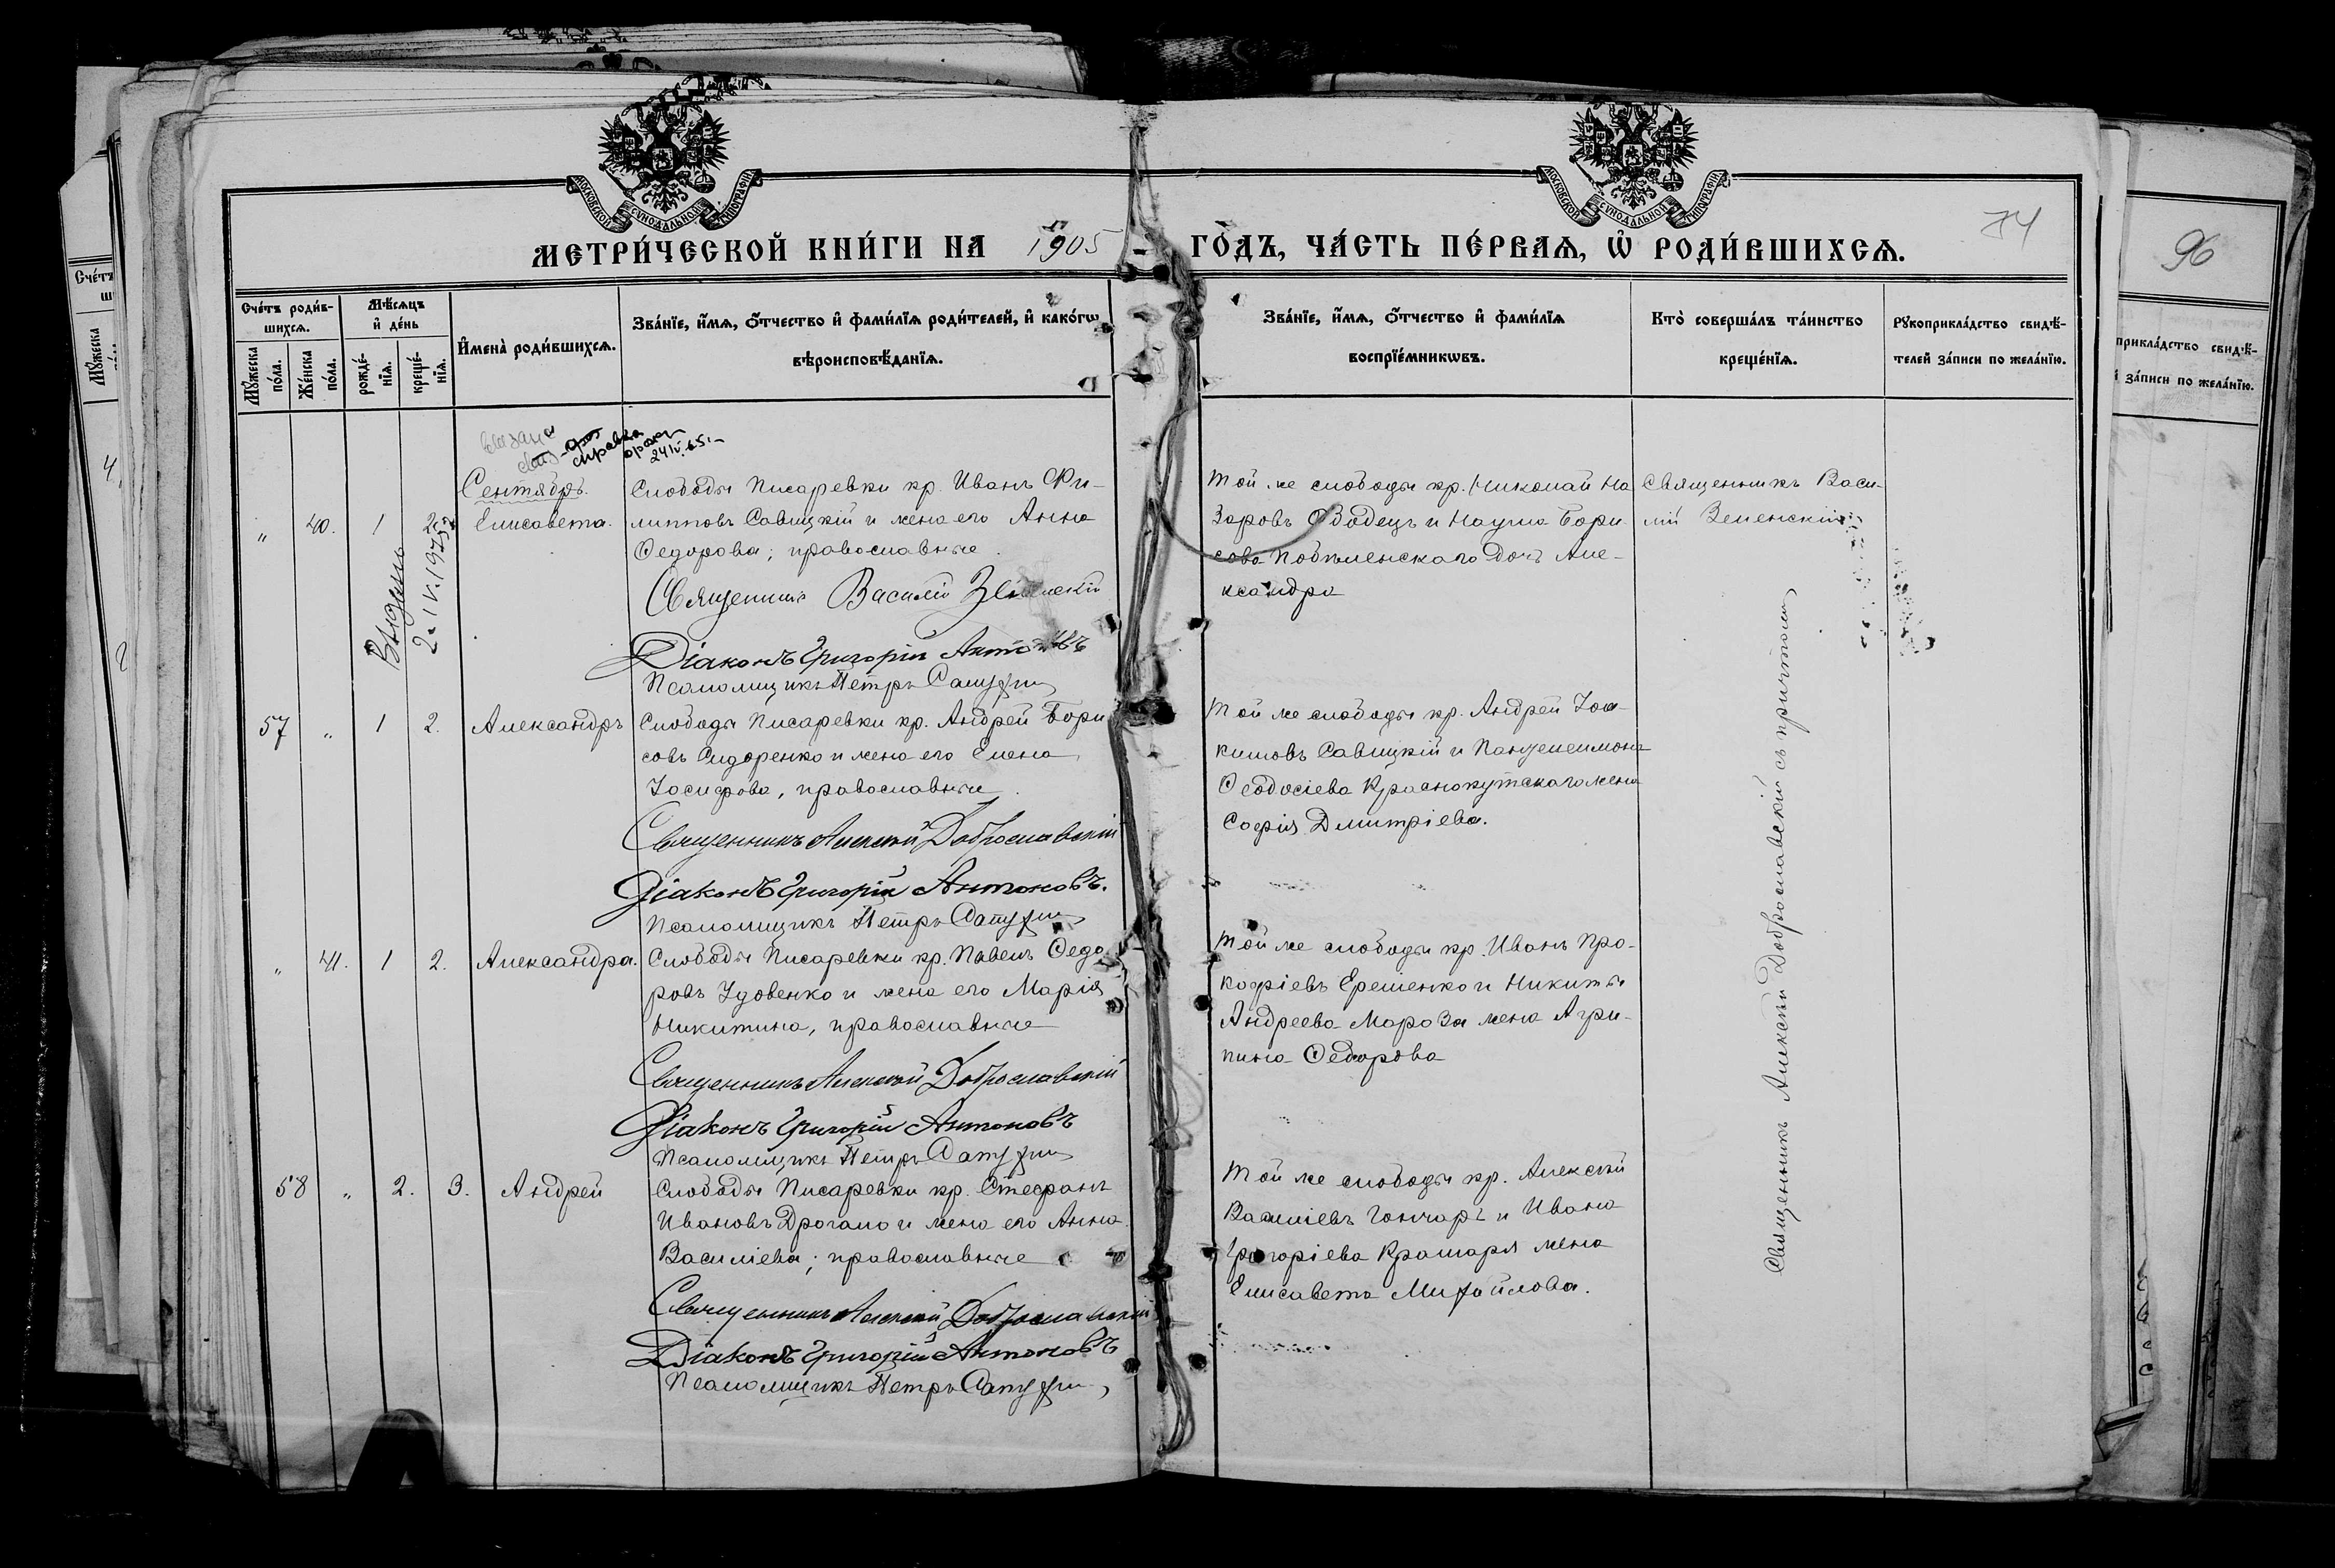 МОСКОВСКОЙ СѴНОДАЛЬНОЙ ТИПОГРАФІИ
МОСКОВСКОЙ СѴНОДАЛЬНОЙ ТИПОГРАФІИ
МЕТРИ́ЧЕСКОЙ КНИ́ГИ НА 1905 ГО́ДЪ, ЧА́СТЬ ПЕ́РВАѦ, Ѡ҆ РОДИ́ВШИХСѦ.
74
96
Сче́тъ роди́в-
шихсѧ.
Мꙋ́жеска
по́ла.
Же́нска
по́ла.
Мѣ́сѧцъ
и҆ де́нь
рожде́-
нїѧ.
креще́-
нїѧ.
И҆мена̀ роди́вшихсѧ.
Зва́нїе, и҆́мѧ, ѻ҆́тчество и҆ фами́лїѧ роди́телей, и҆ како́гѡ
вѣроисповѣ́данїѧ.
Зва́нїе, и҆́мѧ, ѻ҆́тчество и҆ фами́лїѧ
воспрїе́мникѡвъ.
Кто̀ соверша́лъ та́инство
креще́нїѧ.
Рꙋкоприкла́дство свидѣ́-
телей за́писи по жела́нїю.
прикла́дство свидѣ́-
за́писи по жела́нїю.
справка
24 IV.65 г.
Сентябрь.
„ 40. 1 2 Елисавета.
Слободы Писаревки кр. Иванъ Фи-
липповъ Савицкій и жена его Анна
Ѳедорова; православные
Священникъ Василій Зеленскій
Діаконъ Григорій Антоновъ
Псаломщикъ Петръ
Той же слободы кр. Николай На
заровъ Ободецъ и Наума Бори
сова дочь Але-
ксандра
Священникъ Васи-
лій Зеленскій
57 „ 1 2. Александръ
Слободы Писаревки кр. Андрей Бори
совъ Сидоренко и жена его Елена
Іосифова, православные
Священникъ Алексѣй Доброславскій
Діаконъ Григорій Антоновъ.
Псаломщикъ Петръ
Той же слободы кр. Андрей Іоа-
кимовъ Савицкій и Пантелеимона
Ѳеодосіева Краснокутскаго жена
Софія Дмитріева.
„ 41. 1 2. Александра.
Слободы Писаревки кр. Павелъ Ѳедо
ровъ Удовенко и жена его Марія
Никитина, православные
Священникъ Алексѣй Доброславскій
Діаконъ Григорій Антоновъ
Псаломщикъ Петръ
Той же слободы кр. Иванъ Про-
кофіевъ Ерешенко и Никиты
Андреева Мороза жена Агри-
пина Ѳедорова
58 „ 2. 3. Андрей
Слободы Писаревки кр. Стефанъ
Ивановъ Дрогало и жена его Анна
Василіева; православные
Священникъ Алексѣй Доброславскій
Діаконъ Григорій Антоновъ
Псаломщикъ Петръ
Той же слободы кр. Алексѣй
Василіевъ Гончаръ и Ивана
Григоріева Крамаря жена
Елисавета Михайлова.
Священникъ Алексѣй Доброславскій съ причтомъ